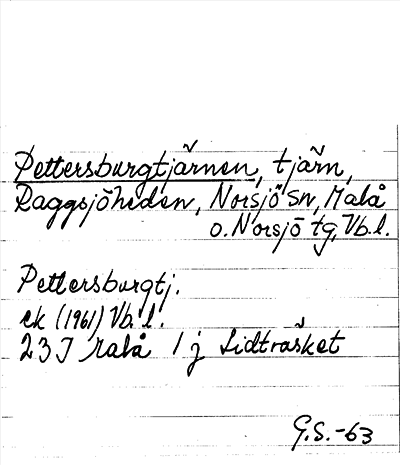 Pettersburgtjärnen, tjärn,
Raggsjöheden, Norsjö sn, Malå
o. Norsjö tg, Vb.l.
Pettersburgtj.
ek (1961) Vb.l.
23J Malå 1j Lidträsket
G.S.-63